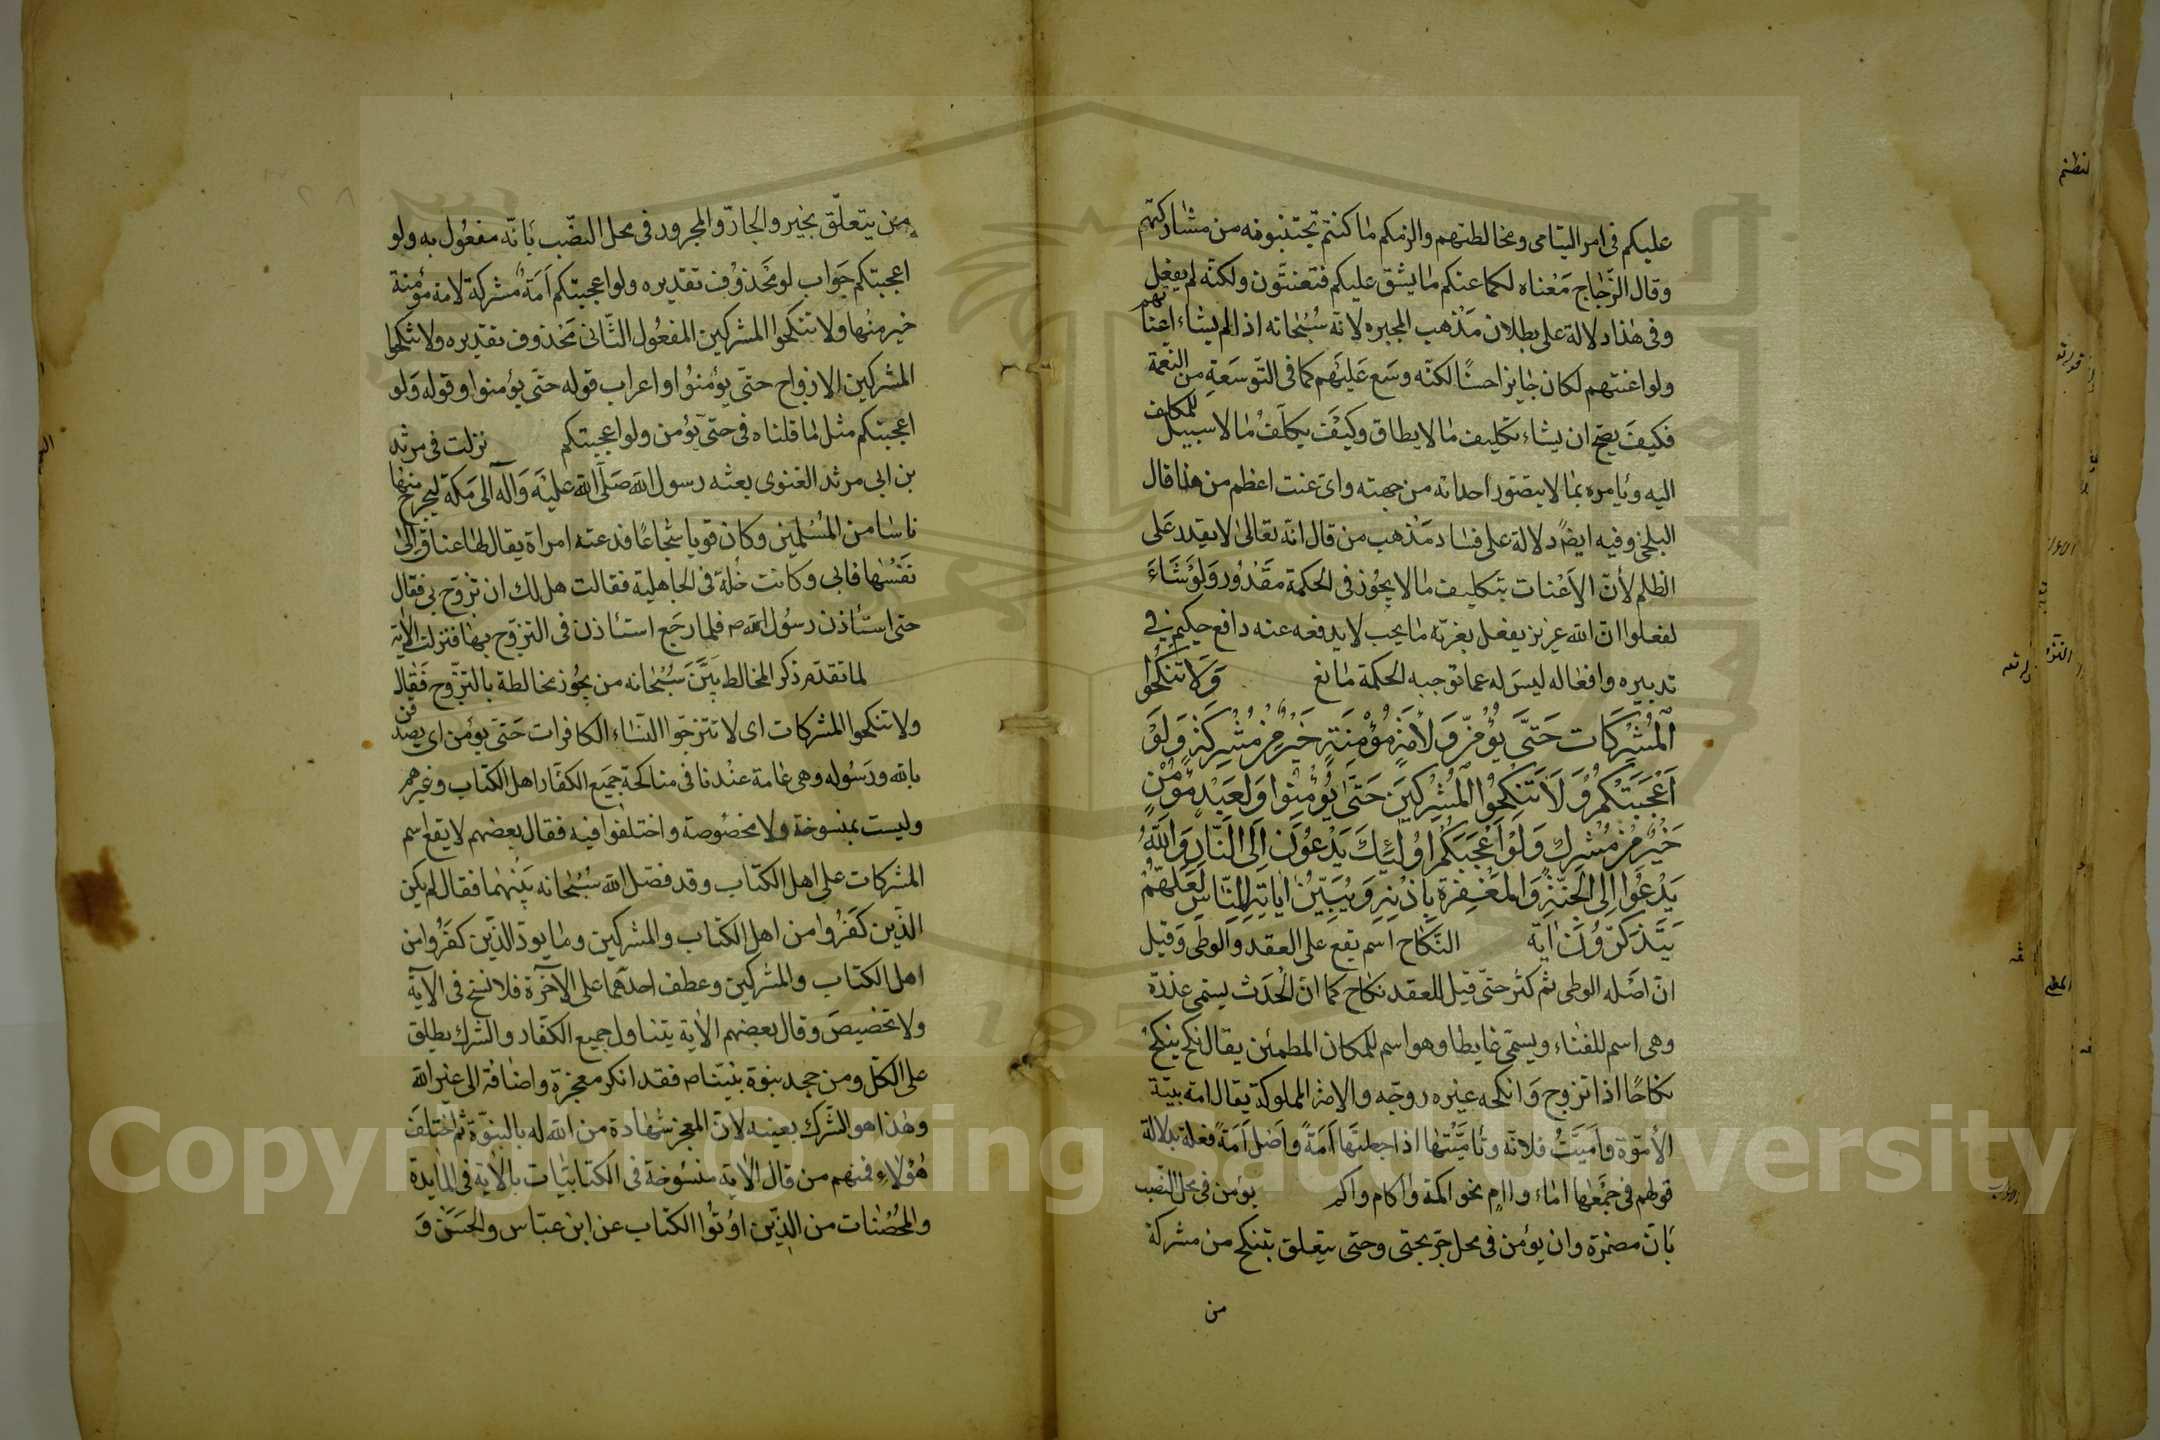 عليكم فى امر اليتامى ومخالطتهم والزمكم ما كنتم تجتنبونه من مشاركتهم
وقال الزجاج معناه لكلفكم ما يشق عليكم فتعنتون ولكنه لم يفعل
وفى هذا دلالة على بطلان مذهب المجبره لانه سبحانه اذا لم يشاء اعناتهم
ولو اعنتهم لكان جايزا حسنا لكنه وسع عليهم كما فى التوسعة من النعمة
فكيف يصح ان يشاء تكليف ما لا يطاق وكيف يكلف ما لا سبيل للمكلف
اليه ويامره بما لا يتصور احداثه من جهته واى عنت اعظم من هذا قال
البلخى وفيه ايضا دلالة على فساد مذهب من قال انه تعالى لا يقدر على
الظلم لأن الاعنات بتكليف ما لا يجوز فى الحكمة مقدور ولو شاء
لفعل ان الله عزيز يفعل بعزته ما يحب لا يدفعه عنه دافع حكيم فى
تدبيره وافعاله ليس له عما توجبه الحكمة مانع ولا تنكحوا
المشركات حتى يؤمن ولأمة مؤمنة خير من مشركة ولو
اعجبتكم ولا تنكحوا المشركين حتى يؤمنوا ولعبد مؤمن
خير من مشرك ولو اعجبكم اولئك يدعون الى النار والله
يدعوا الى الجنة والمغفرة باذنه ويبين اياته للناس لعلهم
يتذكرون اية النكاح اسم يقع على العقد والوطى وقيل
ان اصله الوطى ثم كثر حتى قيل للعقد نكاح كما ان الحدث يسمى عذرة
وهى اسم للفناء ويسمى غايطا وهو اسم للمكان المطمئن يقال نكح ينكح
نكاحا اذا تزوج وانكحه غيره زوجه والامة المملوكة يقال امة بينة
الأموة واميت فلانة وتاميتها اذا جعلتها امة واصل امة فعلة بدلالة
قولهم فى جمعها اماء وآام نحو اكمة واكام واكم يؤمن فى محل النصب
بان مضمرة وان يؤمن فى محل جر بحتى وحتى يتعلق بتنكح من مشركة
من
من يتعلق بخير والجار والمجرور فى محل النصب بانه مفعول به ولو
اعجبتكم جواب لو محذوف تقديره ولو اعجبتكم امة مشركة لامة مؤمنة
خير منها ولا تنكحوا المشركين المفعول الثانى محذوف تقديره ولا تنكحوا
المشركين الازواج حتى يؤمنوا واعراب قوله حتى يؤمنوا وقوله ولو
اعجبتكم مثل ما قلناه فى حتى يؤمن ولو اعجبتكم نزلت فى مرثد
بن ابى مرثد الغنوى بعثه رسول الله صلى الله عليه وآله الى مكة ليخرج منها
ناسا من المسلمين وكان قويا شجاعا فدعته امراة يقال لها عناق الى
نفسها فابى وكانت خلة فى الجاهلية فقالت هل لك ان تزوج بى فقال
حتى استأذن رسول الله ص فلما رجع استأذن فى التزوج بها فنزلت الاية
لما تقدم ذكر المخالطة بين سبحانه من يجوز مخالطة بالتزوج فقال
ولا تنكحوا المشركات اى لا تتزوجوا النساء الكافرات حتى يؤمن اى يصدقن
بالله ورسوله وهى عامة عندنا فى مناكحة جميع الكفار اهل الكتاب وغيرهم
وليست بمنسوخة ولا مخصوصة واختلفوا فيه فقال بعضهم لا يقع اسم
المشركات على اهل الكتاب وقد فصل الله سبحانه بينهما فقال لم يكن
الذين كفروا من اهل الكتاب والمشركين وما يود الذين كفروا من
اهل الكتاب والمشركين وعطف احدهما على الآخرة فلا نسخ فى الآية
ولا تخصيص وقال بعضهم الاية يتناول جميع الكفار والشرك يطلق
على الكل ومن جحد نبوة نبينا ص فقد انكر معجزة واضافه الى غير الله
وهذا هو الشرك بعينه لان المعجز شهادة من الله له بالنبوة ثم اختلف
هؤلاء فمنهم من قال الاية منسوخة فى الكتابيات بالاية فى المايدة
والمحصنات من الذين اوتوا الكتاب عن ابن عباس والحسن و
Copyright © King Saud University